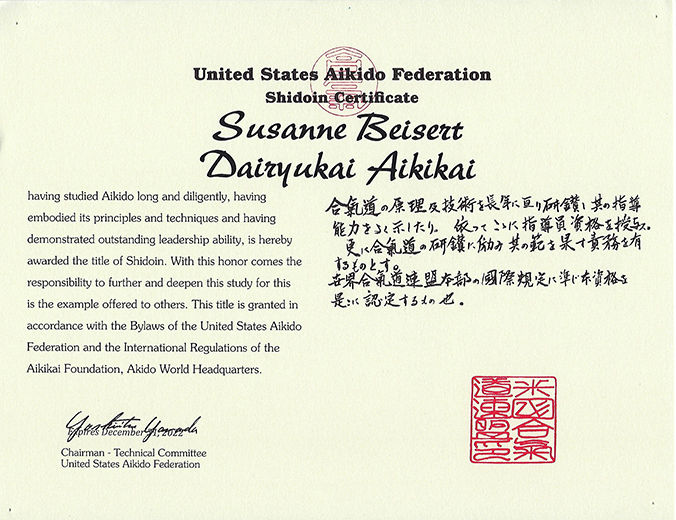 United States Aikido Federation
Shidoin Certificate
Susanne Beisert
Dairyukai Aikikai
having studied Aikido long and diligently, having
embodied its principles and techniques and having
demonstrated outstanding leadership ability, is hereby
awarded the title of Shidoin. With this honor comes the
responsibility to further and deepen this study for this
is the example offered to others. This title is granted in
accordance with the Bylaws of the United States Aikido
Federation and the International Regulations of the
Aikikai Foundation, Akido World Headquarters.
合氣道の原理及技術を長年に亘り研鑽し其の指導
能力をよく示したり。依ってここに指導員資格を授与す。
更に合氣道の研鑽に励み其の範を果す責務を有
するものとす。
世界合氣道連盟本部の國際規定に準じ本資格を
是に認定するもの也。
Expires December 31, 2022
Chairman - Technical Committee
United States Aikido Federation